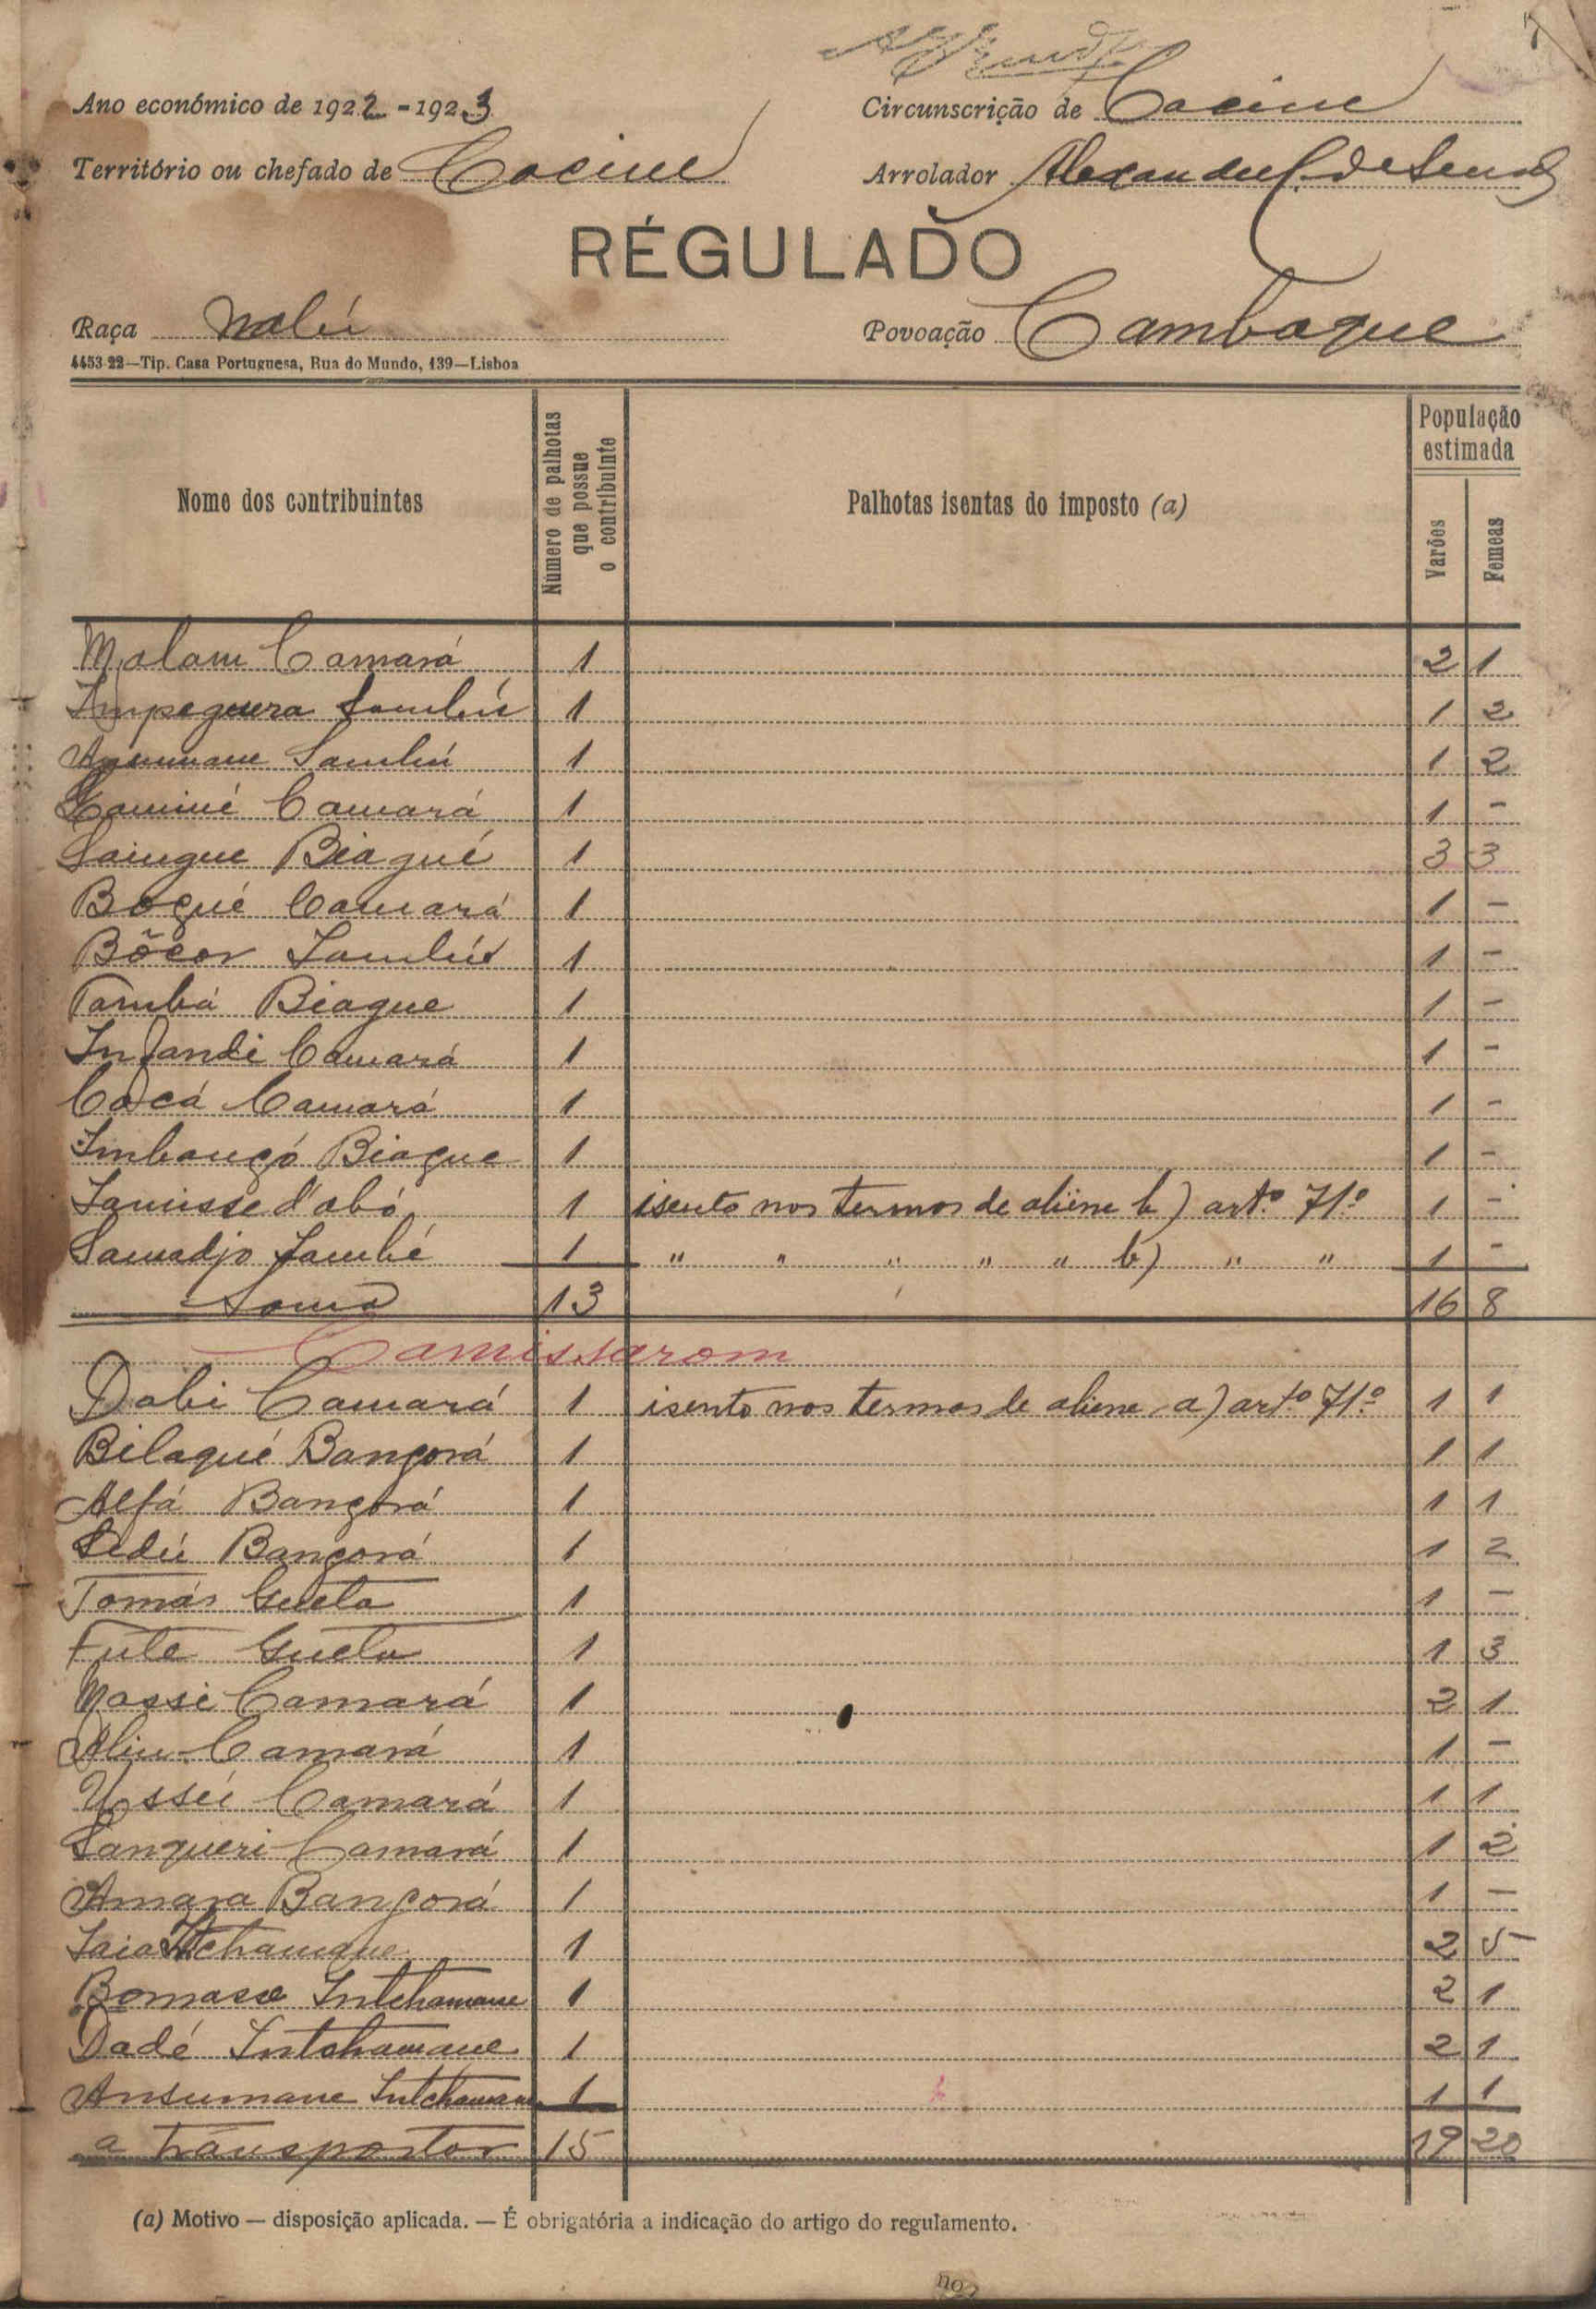 Ano económico de 1922-1923 Circunscrição de Cacine
Território ou chefado de Cacine Arrolador Alexandre C. de Sena
RÉGULADO
Raça Nalú Povoação Cambaque
4453-22—Tip. Casa Portuguesa, Rua do Mundo, 139—Lisboa
Nome dos contribuintes Número de palhotas que possue o contribuinte Palhotas isentas do imposto (a) População estimada Varões Femeas
Malam Camará 1 2 1
Impeguera Sambú 1 1 2
Ansumane Sambú 1 1 2
Laminé Camará 1 1 -
Saingue Biagué 1 3 3
Boqué Camará 1 1 -
Bôcor Sambú 1 1 -
Tambá Biague 1 1 -
Infandi Camará 1 1 -
Cadcá Camará 1 1 -
Imbançó Biague 1 1 -
Lamisse d'abó 1 isento nos termos de aliene b) artº 71º 1 -
Samadjo Sambé 1 " " " " " b) " " 1 -
Soma 13 16 8
Camissarom
Dabi Camará 1 isento nos termos de aliene a) artº 71º 1 1
Bilaqué Bangorá 1 1 1
Alfá Bangorá 1 1 1
Sedú Bangorá 1 1 2
Tomás Gueta 1 1 -
Fute Gueta 1 1 3
Massi Camará 1 2 1
Aliu Camará 1 1 -
Ussei Camará 1 1 1
Sanqueri Camará 1 1 2
Amara Bangorá 1 1 -
Iaia Intchamane 1 2 5
Bomasse Intchamane 1 2 1
Dadé Intchamane 1 2 1
Ansumane Intchamane 1 1 1
a transportar 15 19 20
(a) Motivo — disposição aplicada. — É obrigatória a indicação do artigo do regulamento.